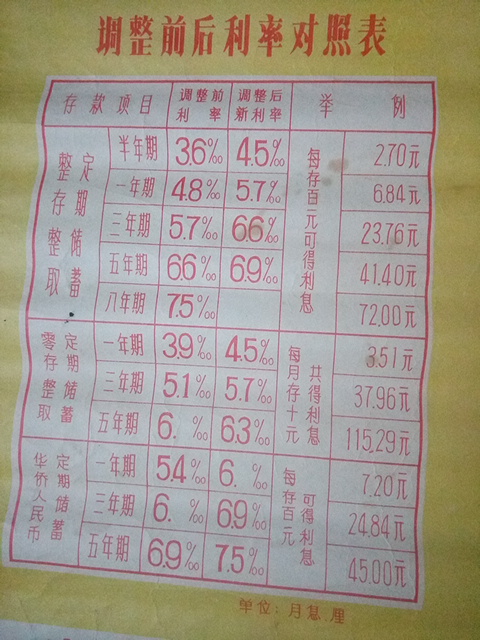 调整前后利率对照表
存款项目 调整前利率 调整后新利率 举例
整存整取 定期储蓄 每存百元可得利息
半年期 3.6‰ 4.5‰ 2.70元
一年期 4.8‰ 5.7‰ 6.84元
三年期 5.7‰ 6.6‰ 23.76元
五年期 6.6‰ 6.9‰ 41.40元
八年期 7.5‰ 72.00元
零存整取 定期储蓄 每月存十元 共得利息
一年期 3.9‰ 4.5‰ 3.51元
三年期 5.1‰ 5.7‰ 37.96元
五年期 6.‰ 6.3‰ 115.29元
华侨人民币 定期储蓄 每存百元 可得利息
一年期 5.4‰ 6.‰ 7.20元
三年期 6.‰ 6.9‰ 24.84元
五年期 6.9‰ 7.5‰ 45.00元
单位:月息厘